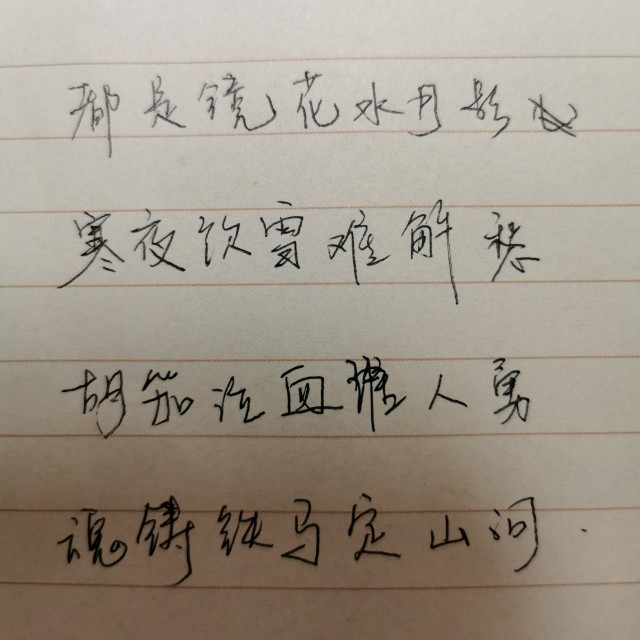 都是镜花水月影
寒夜饮雪难解愁
胡笳泣血谁人勇
魂铸铁马定山河.